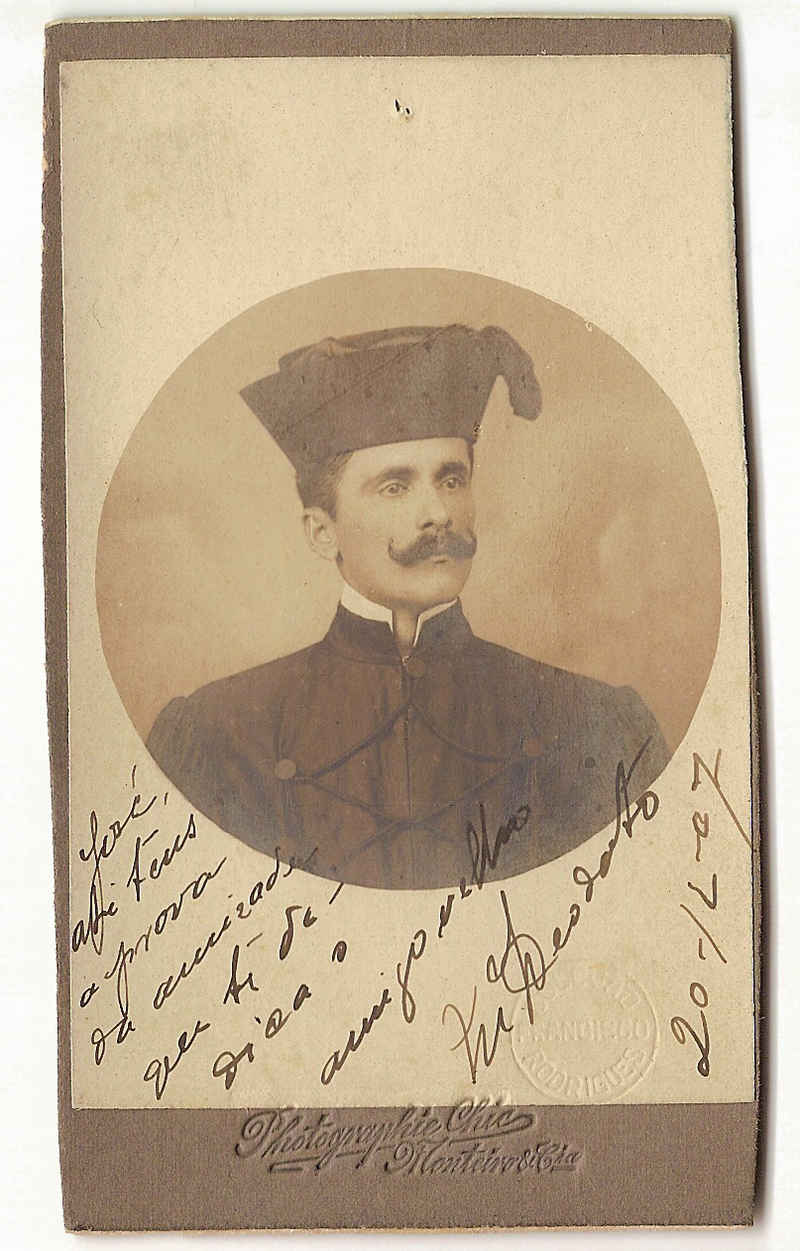 José,
ahi tens
a prova
da amizade
que ti de-
dica o
amigo velho
Deodato
20-12-07
FRANCISCO
RODRIGUES
Photographie Chic
Monteiro & Cia